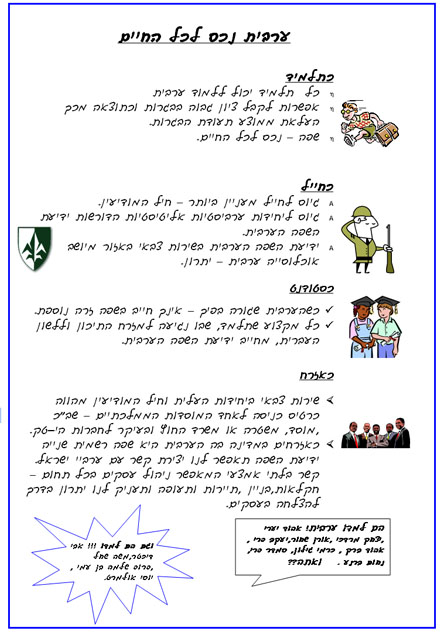 ערבית נכס לכל החיים
כתלמיד
כל תלמיד יכול ללמוד ערבית
אפשרות לקבל ציון גבוה בבגרות וכתוצאה מכך
העלאת ממוצע תעודת הבגרות.
שפה – נכס לכל החיים.
כחייל
גיוס לחייל מעניין ביותר – חיל המודיעין.
גיוס ליחידות ערביסטיות אליטיסטיות הדורשות ידיעת
השפה הערבית.
ידיעת השפה הערבית בשירות צבאי באזור מיושב
אוכלוסייה ערבית – יתרון.
כסטודנט
כשהערבית שגורה בפיך – אינך חייב בשפה זרה נוספת.
כל מקצוע שתלמד, שבו נגיעה למזרח התיכון וללשון
העברית, מחייב ידיעת השפה הערבית.
כאזרח
שירות צבאי ביחידות העלית וחיל המודיעין מהווה
כרטיס כניסה לאחד המוסדות הממלכתיים – שב"כ
,מוסד, משטרה או משרד החוץ ובעיקר לחברות הי-טק.
כאזרחים במדינה בה הערבית היא שפה רשמית שנייה
ידיעת השפה תאפשר לנו יצירת קשר עם ערביי ישראל.
קשר בלתי אמצעי המאפשר ניהול עסקים בכל תחום –
חקלאות,בניין ,תיירות ותעופה ותעניק לנו יתרון בדרך
להצלחה בעסקים.
הם למדו ערבית! אהוד יערי
,יצחק מרדכי ,אורן שחור,יעקב פרי ,
אהוד ברק , כרמי גילון, סמדר פרי,
נחום ברנע . ואתה??
וגם הם למדו !!! אבי
דיכטר,משה שחל
,פרופ שלמה בן עמי ,
יוסי אולמרט.